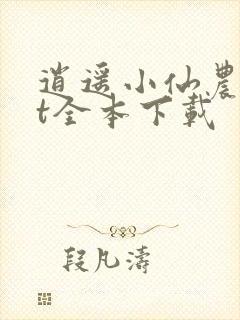 逍遥小仙農
t全本下載
段凡濤